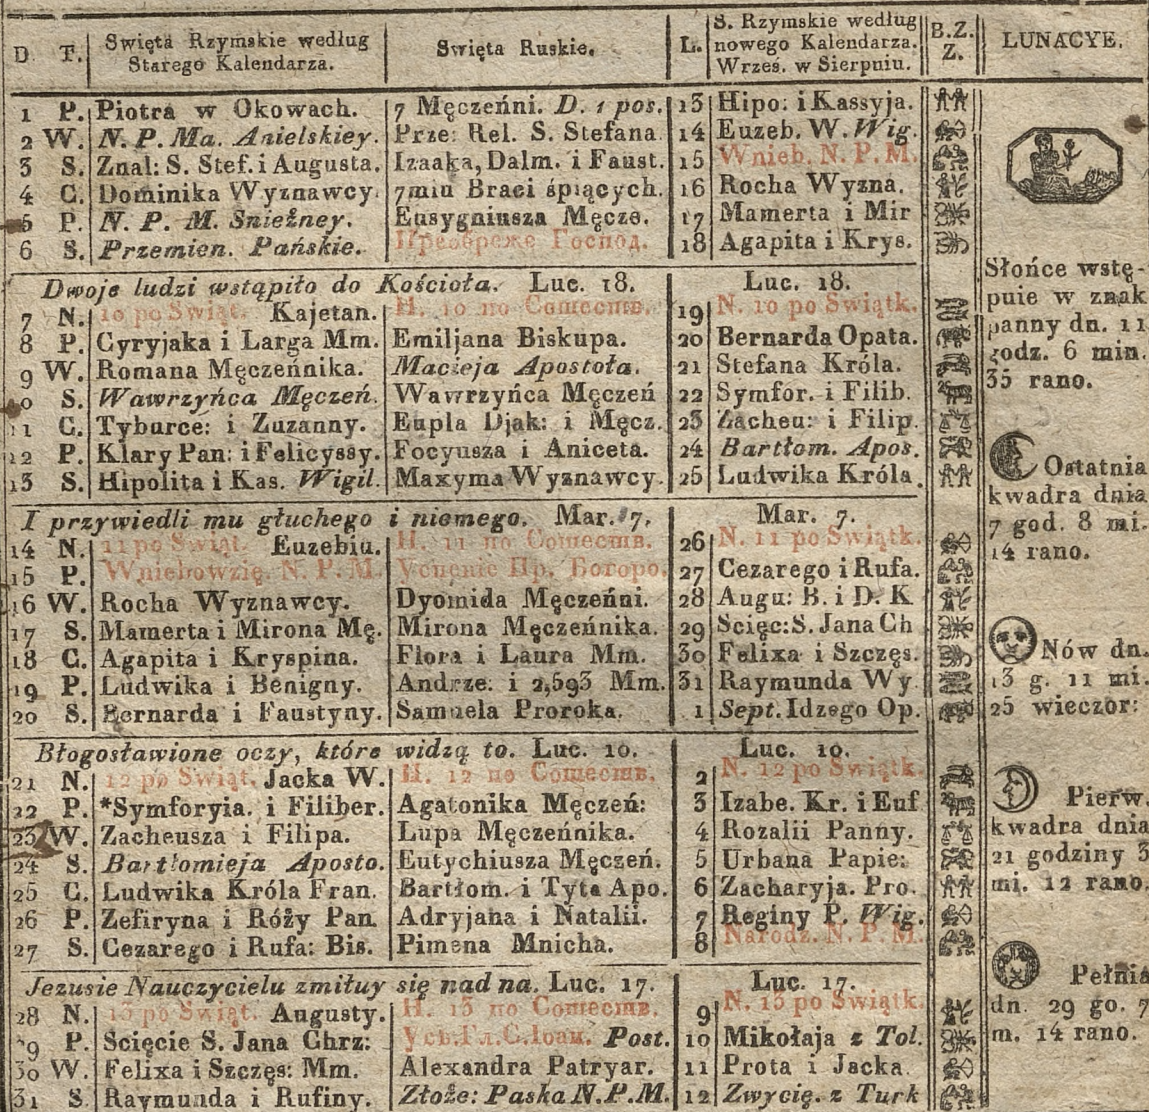 D T. Swięta Rzymskie według Starego Kalendarza. Swięta Ruskie. L. S. Rzymskie według nowego Kalendarza. Wrześ. w Sierpniu. B.Z. Z. LUNACYE.
1 P. Piotra w Okowach. 7 Męczeńni. D. 1 pos. 13 Hipo: i Kassyja.
2 W. N. P. Ma. Anielskiey. Prze: Rel. S. Stefana. 14 Euzeb. W. Wig.
3 S. Znal: S. Stef. i Augusta. Izaaka, Dalm. i Faust. 15 Wnieb. N. P. M.
4 C. Dominika Wyznawcy. 7miu Braci śpiących. 16 Rocha Wyzna.
5 P. N. P. M. Snieżney. Eusygniusza Męcze. 17 Mamerta i Mir
6 S. Przemien. Pańskie. Преображе Господ. 18 Agapita i Krys.
Dwoje ludzi wstąpiło do Kościoła. Luc. 18. Luc. 18.
7 N. 10 po Swiąt. Kajetan. Н. 10 по Сошеств. 19 N. 10 po Swiątk.
8 P. Cyryjaka i Larga Mm. Emiljana Biskupa. 20 Bernarda Opata.
9 W. Romana Męczeńnika. Macieja Apostoła. 21 Stefana Króla.
0 S. Wawrzyńca Męczeń. Wawrzyńca Męczeń 22 Symfor. i Filib.
11 C. Tyburce: i Zuzanny. Eupla Djak: i Męcz. 23 Zacheu: i Filip.
12 P. Klary Pan: i Felicyssy. Focyusza i Aniceta. 24 Bartłom. Apos.
13 S. Hipolita i Kas. Wigil. Maxyma Wyznawcy. 25 Ludwika Króla.
I przywiedli mu głuchego i niemego. Mar. 7. Mar. 7.
14 N. 11 po Swiąt. Euzebiu. Н. 11 по Сошеств. 26 N. 11 po Swiątk.
15 P. Wniebowzię. N. P. M. Успение Пр. Богоро. 27 Cezarego i Rufa.
16 W. Rocha Wyznawcy. Dyomida Męczeńni. 28 Augu: B. i D. K
17 S. Mamerta i Mirona Mę. Mirona Męczeńnika. 29 Scięc: S. Jana Ch
18 C. Agapita i Kryspina. Flora i Laura Mm. 30 Felixa i Szczęs.
19 P. Ludwika i Benigny. Andrze: i 2,593 Mm. 31 Raymunda Wy
20 S. Bernarda i Faustyny. Samuela Proroka. 1 Sept. Idzego Op.
Błogosławione oczy, które widzą to. Luc. 10. Luc. 10.
21 N. 12 po Swiąt. Jacka W. Н. 12 по Сошеств. 2 N. 12 po Swiątk.
22 P. *Symforyia. i Filiber. Agatonika Męczeń: 3 Izabe. Kr. i Euf
23 W. Zacheusza i Filipa. Lupa Męczeńnika. 4 Rozalii Panny.
24 S. Bartłomieja Aposto. Eutychiusza Męczeń. 5 Urbana Papie:
25 C. Ludwika Króla Fran. Bartłom. i Tyta Apo. 6 Zacharyja. Pro.
26 P. Zefiryna i Róży Pan Adryjana i Natalii. 7 Reginy P. Wig.
27 S. Cezarego i Rufa: Bis. Pimena Mnicha. 8 Narodz. N. P. M.
Jezusie Nauczycielu zmiłuy się nad na. Luc. 17. Luc. 17.
28 N. 13 po Swiąt. Augusty. Н. 13 по Сошеств. 9 N. 13 po Swiątk.
29 P. Scięcie S. Jana Chrz: Усѣ. Гл. С. Іоан. Post. 10 Mikołaja z Tol.
30 W. Felixa i Szczęs: Mm. Alexandra Patryar. 11 Prota i Jacka.
31 S Raymunda i Rufiny. Złoże: Paska N. P. M. 12 Zwycię. z Turk
Słońce wstę-
puie w znak
panny dn. 11
godz. 6 min.
35 rano.
Ostatnia
kwadra dnia
7 god. 8 mi.
14 rano.
Nów dn.
13 g. 11 mi.
25 wieczor:
Pierw.
kwadra dnia
21 godziny 3
mi. 12 rano.
Pełnia
dn. 29 go. 7
m. 14 rano.